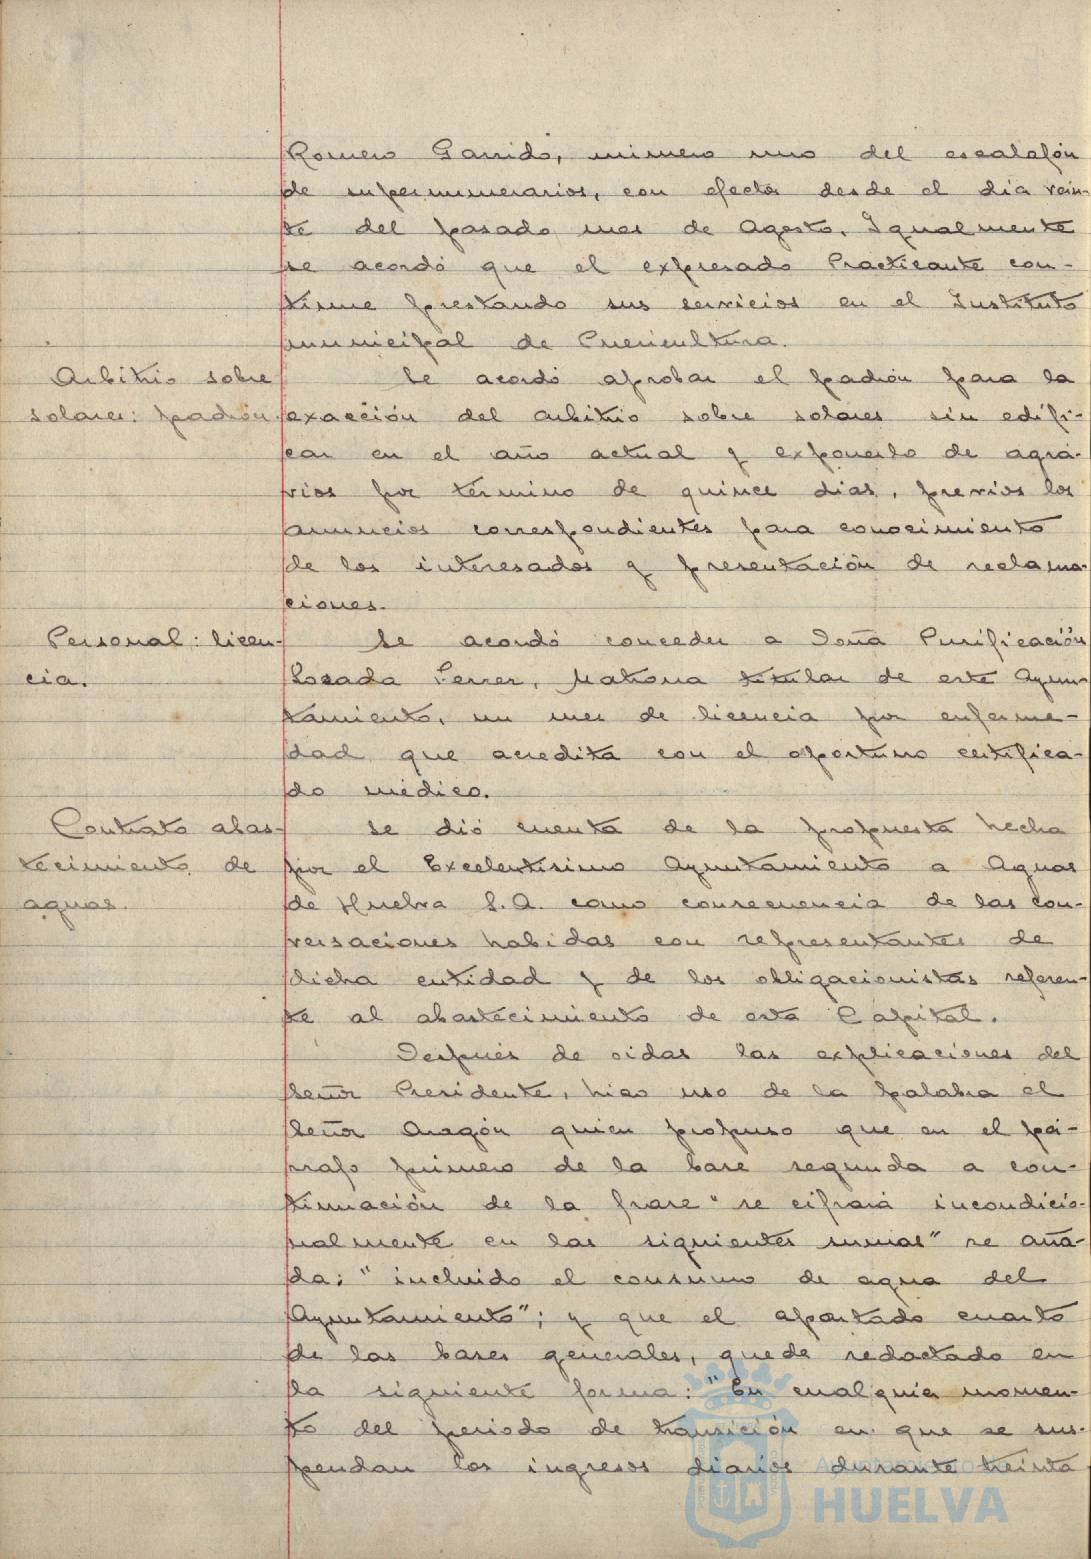 Romero Garrido, número uno del escalafón
de supernumerarios, con efectos desde el día vein-
te del pasado mes de Agosto. Igualmente
se acordó que el expresado Practicante con-
tinue prestando sus servicios en el Instituto
municipal de Puericultura.
Arbitrio sobre
solares: padrón.
Se acordó aprobar el padrón para la
exacción del arbitrio sobre solares sin edifi-
car en el año actual y exponerlo de agra-
vios por término de quince dias, previos los
anuncios correspondientes para conocimiento
de los interesados y presentación de reclama-
ciones.
Personal: licen-
cia.
Se acordó conceder a Doña Purificación
Losada Ferrer, Matrona titular de este Ayun-
tamiento, un mes de licencia por enferme-
dad que acredita con el oportuno certifica-
do médico.
Contrato abas-
tecimiento de
aguas.
Se dió cuenta de la propuesta hecha
por el Excelentísimo Ayuntamiento a Aguas
de Huelva S.A. como consecuencia de las con-
versaciones habidas con representantes de
dicha entidad y de los obligacionistas referen-
te al abastecimiento de esta Capital.
Después de oidas las explicaciones del
Señor Presidente, hizo uso de la palabra el
Señor Aragón quien propuso que en el pá-
rrafo primero de la base segunda a con-
tinuación de la frase "se cifrará incondicio-
nalmente en las siguientes sumas" se aña-
da: "incluido el consumo de agua del
Ayuntamiento"; y que el apartado cuarto
de las bases generales, quede redactado en
la siguiente forma: "En cualquier momen-
to del periodo de transición en que se sus-
pendan los ingresos diarios durante treinta
Ayuntamiento
HUELVA